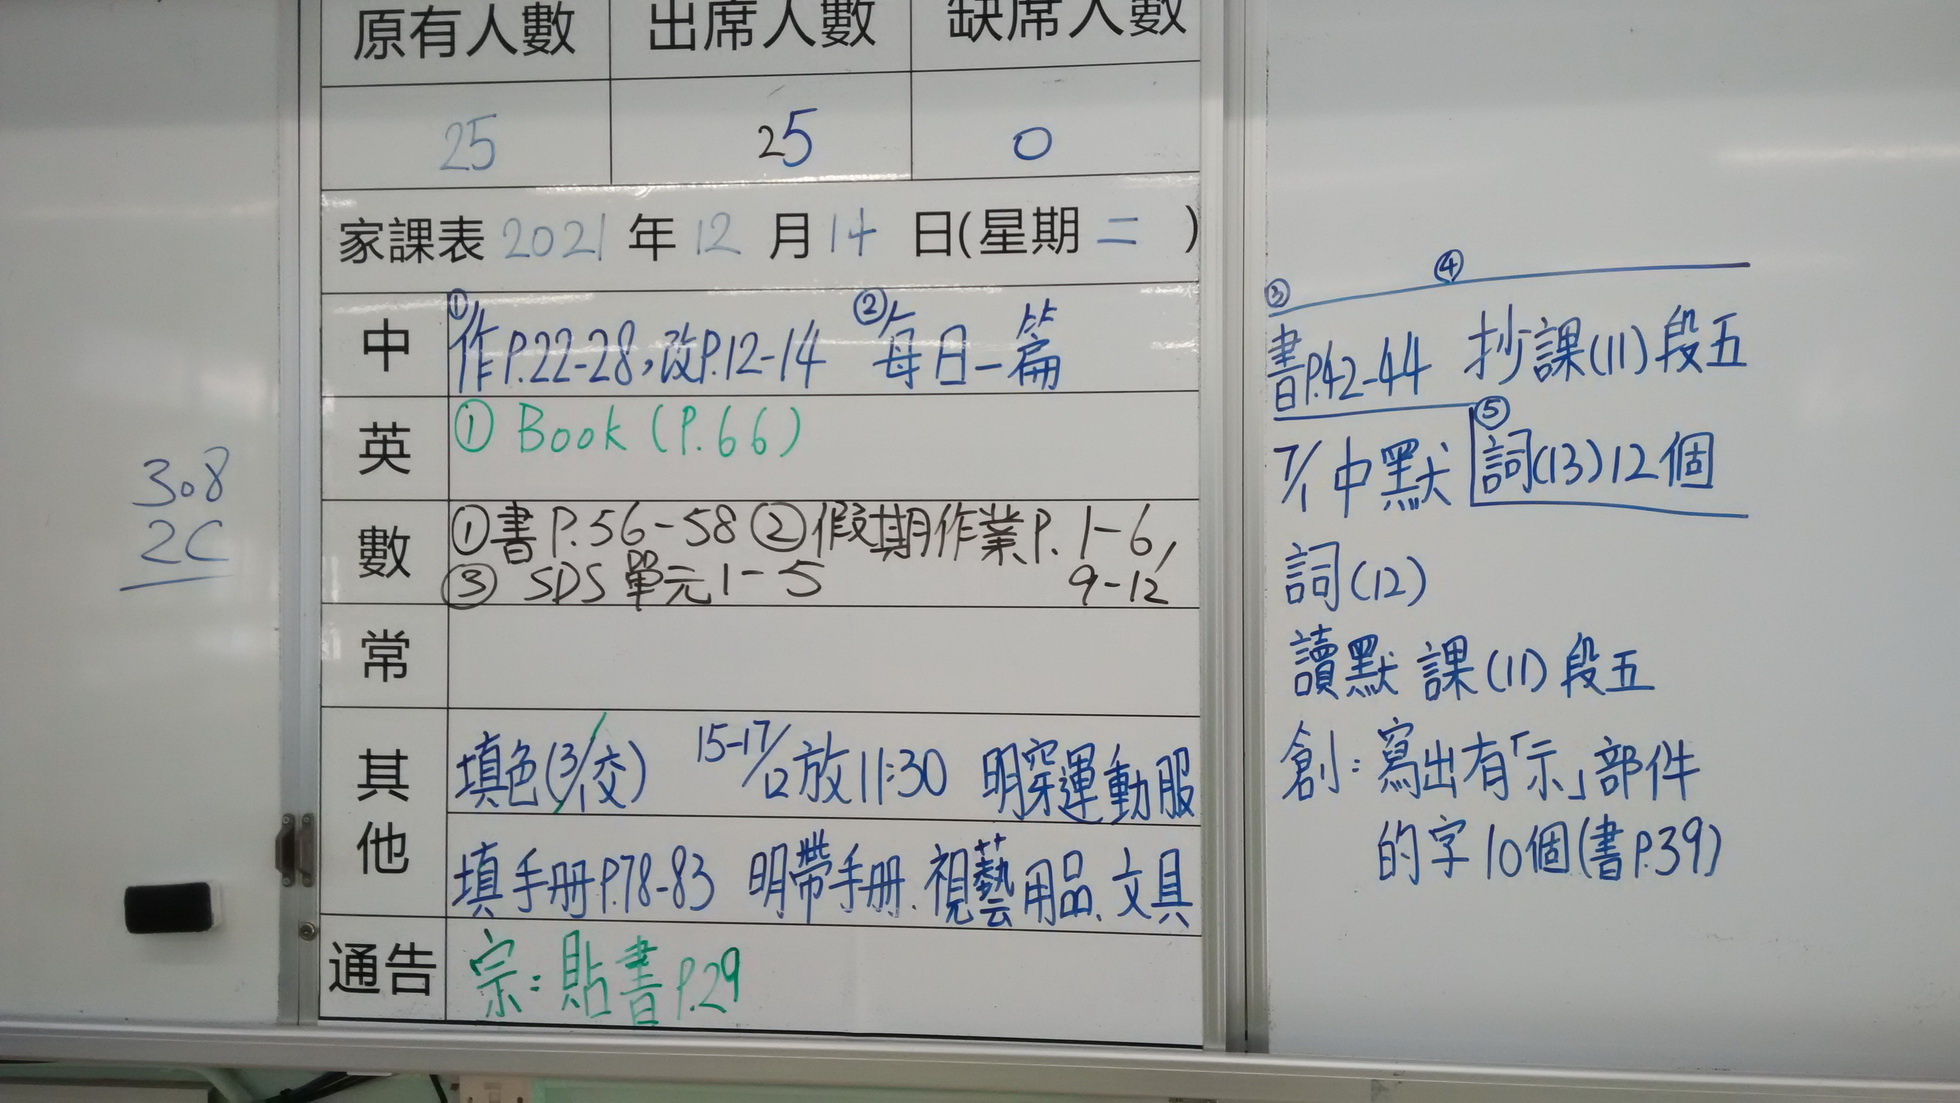 原有人數 出席人數 缺席人數
25 25 0
家課表 2021 年 12 月 14 日(星期 二 )
中 ①作P.22-28,改P.12-14 ②每日一篇
英 ① Book (P.66)
數 ①書P.56-58 ②假期作業P.1-6,
③ SDS單元1-5 9-12
常
其他 填色(3/1交) 15-17/12放11:30 明穿運動服
填手册P.78-83 明帶手册、視藝用品、文具
通告 宗:貼書P.29
308
2C
③書P.42-44 ④抄課(11)段五
7/1中默 ⑤詞(13)12個
詞(12)
讀默 課(11)段五
創:寫出有「示」部件
的字10個(書P.39)